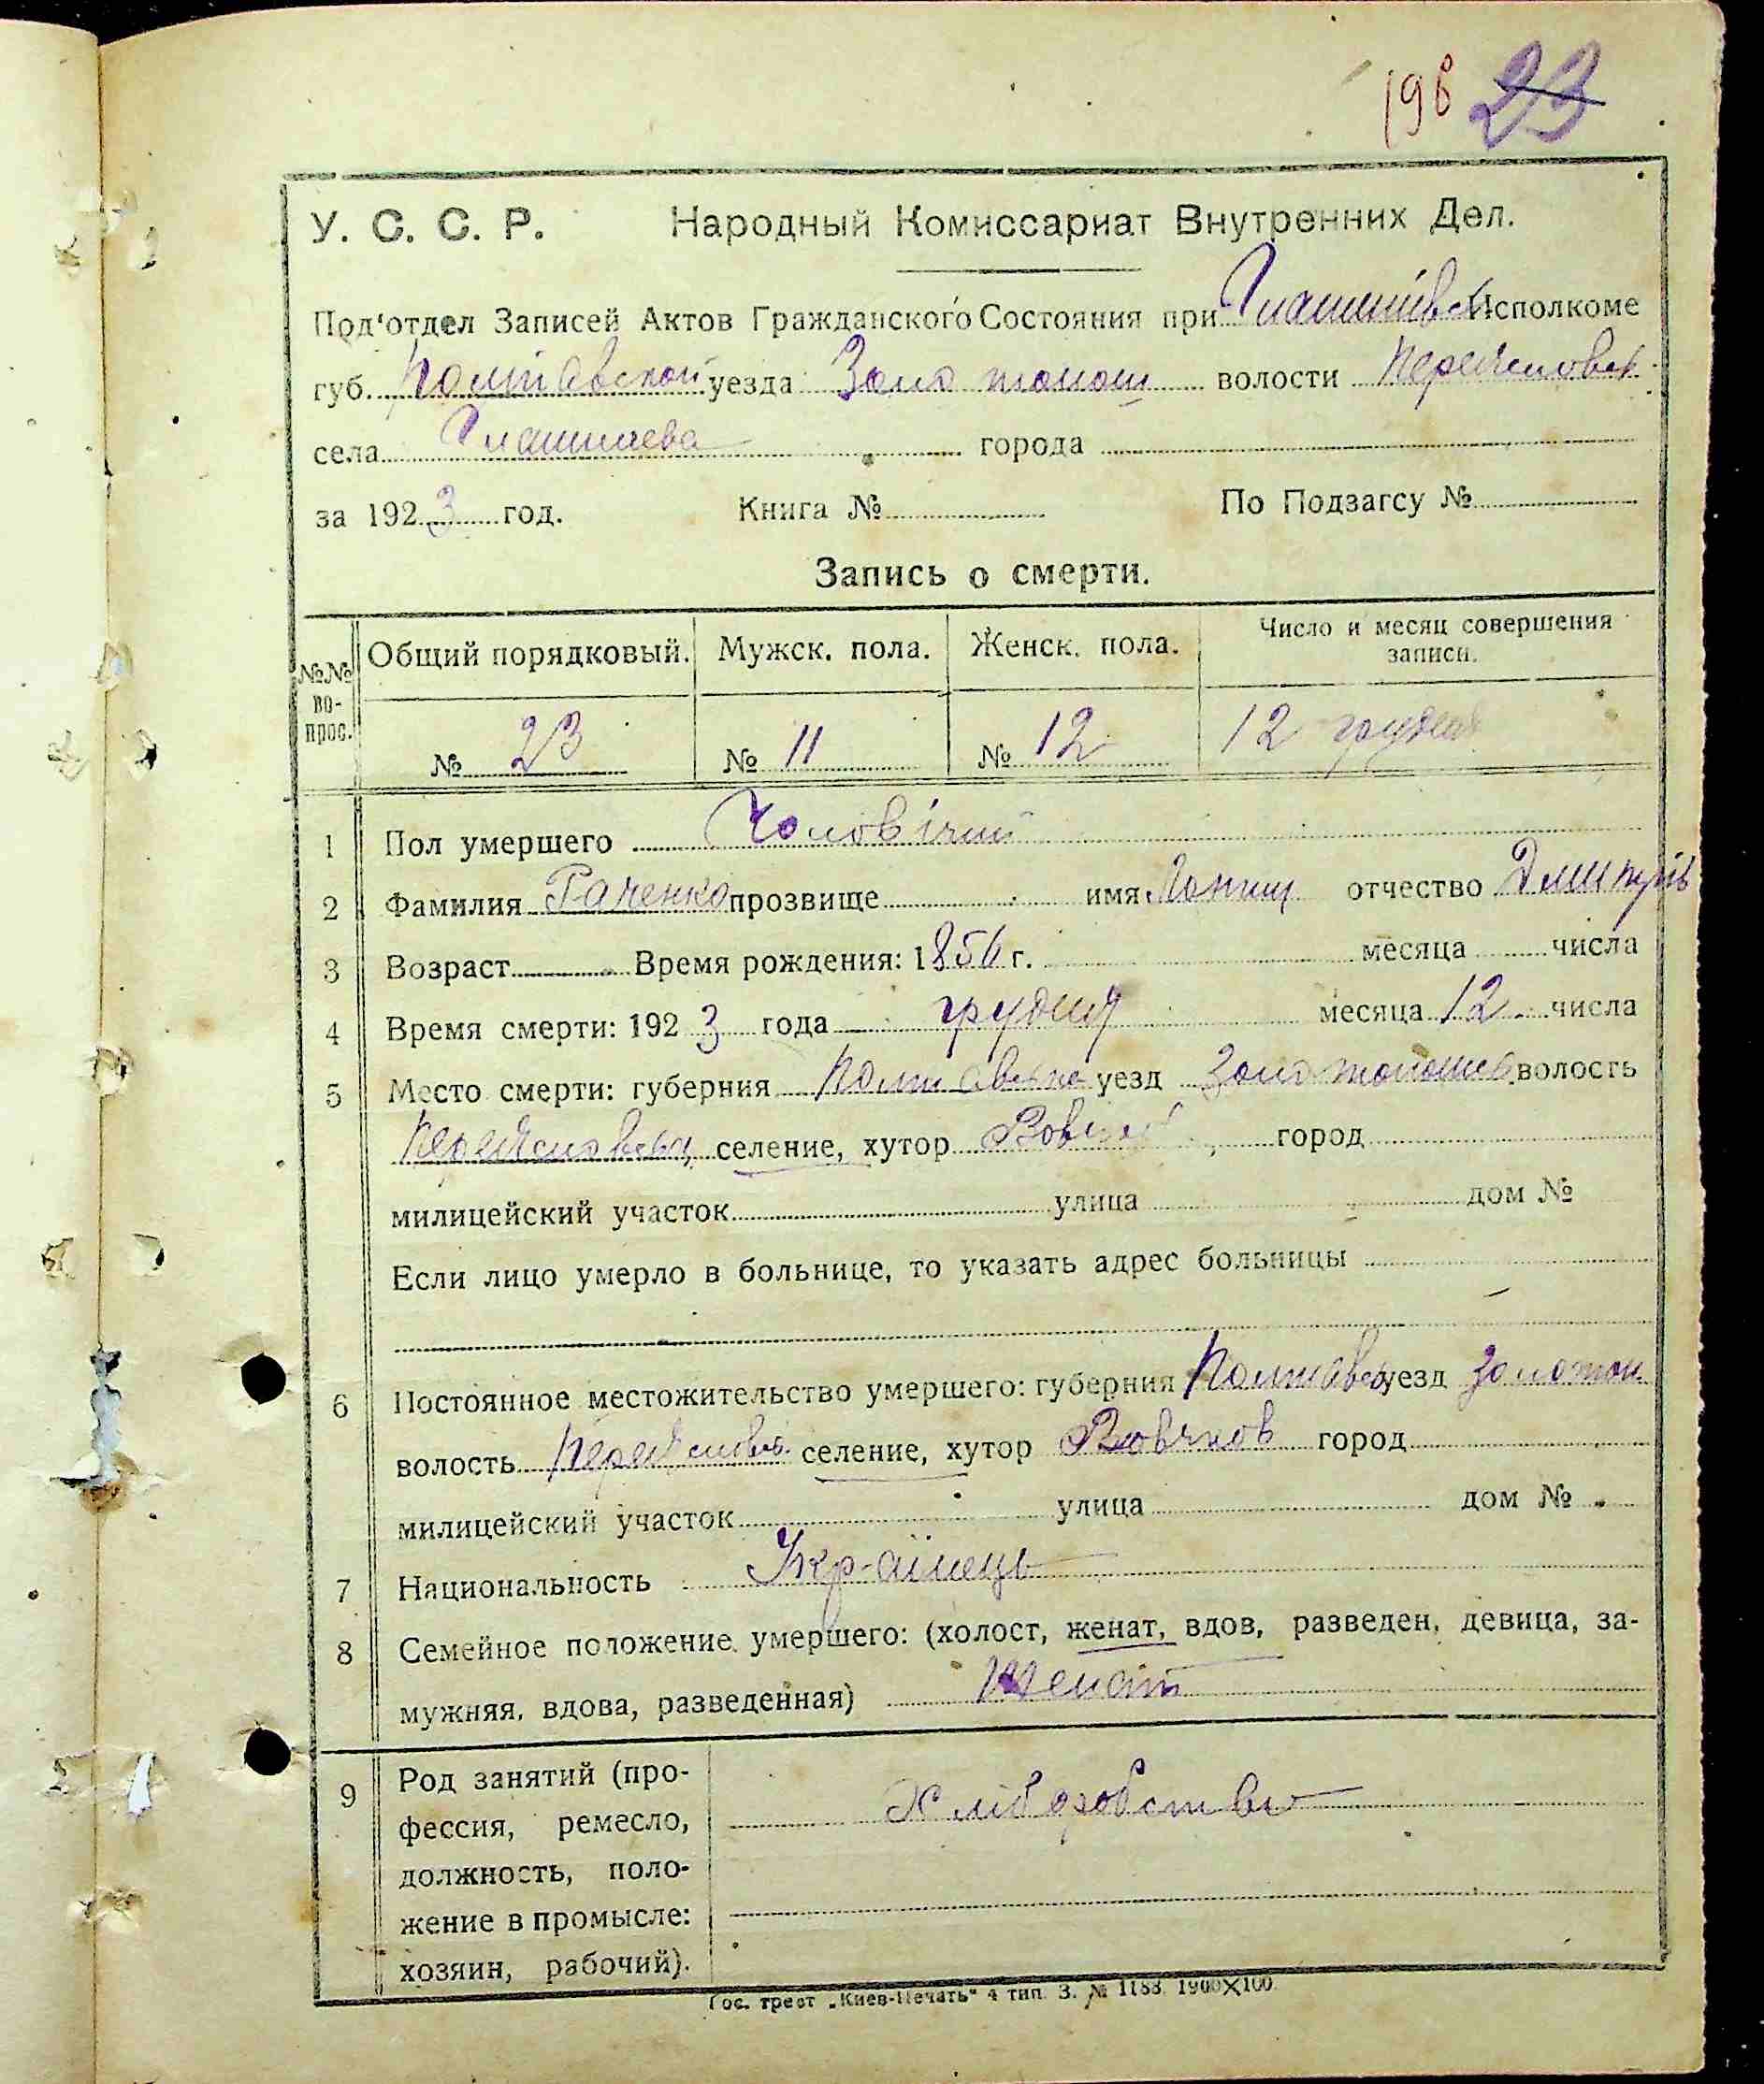 198 23
У. С. С. Р. Народный Комиссариат Внутренних Дел.
Под'отдел Записей Актов Гражданского Состояния при Исполкоме
губ. Полтавской уезда Золотонош волости Переяславск
села города
за 1923 год. Книга № По Подзагсу №
Запись о смерти.
№№ во-прос. Общий порядковый. Мужск. пола. Женск. пола. Число и месяц совершения записи.
№ 23 № 11 № 12 12 грудня
1 Пол умершего Чоловічий
2 Фамилия прозвище имя отчество Дмитрів
3 Возраст Время рождения: 1856 г. месяца числа
4 Время смерти: 1923 года грудня месяца 12 числа
5 Место смерти: губерния Полтавська уезд Золотоношс. волость
селение, хутор город
милицейский участок улица дом №
Если лицо умерло в больнице, то указать адрес больницы
6 Постоянное местожительство умершего: губерния Полтавс уезд Золотон
волость Переяславс. селение, хутор город
милицейский участок улица дом №
7 Национальность Укр-аїнець
8 Семейное положение умершего: (холост, женат, вдов, разведен, девица, за-
мужняя, вдова, разведенная) Женат
9 Род занятий (про-
фессия, ремесло, Хліборобство
должность, поло-
жение в промысле:
хозяин, рабочий).
Гос. трест „Киев-Печать“ 4 тип. З. № 1183. 1900×100.